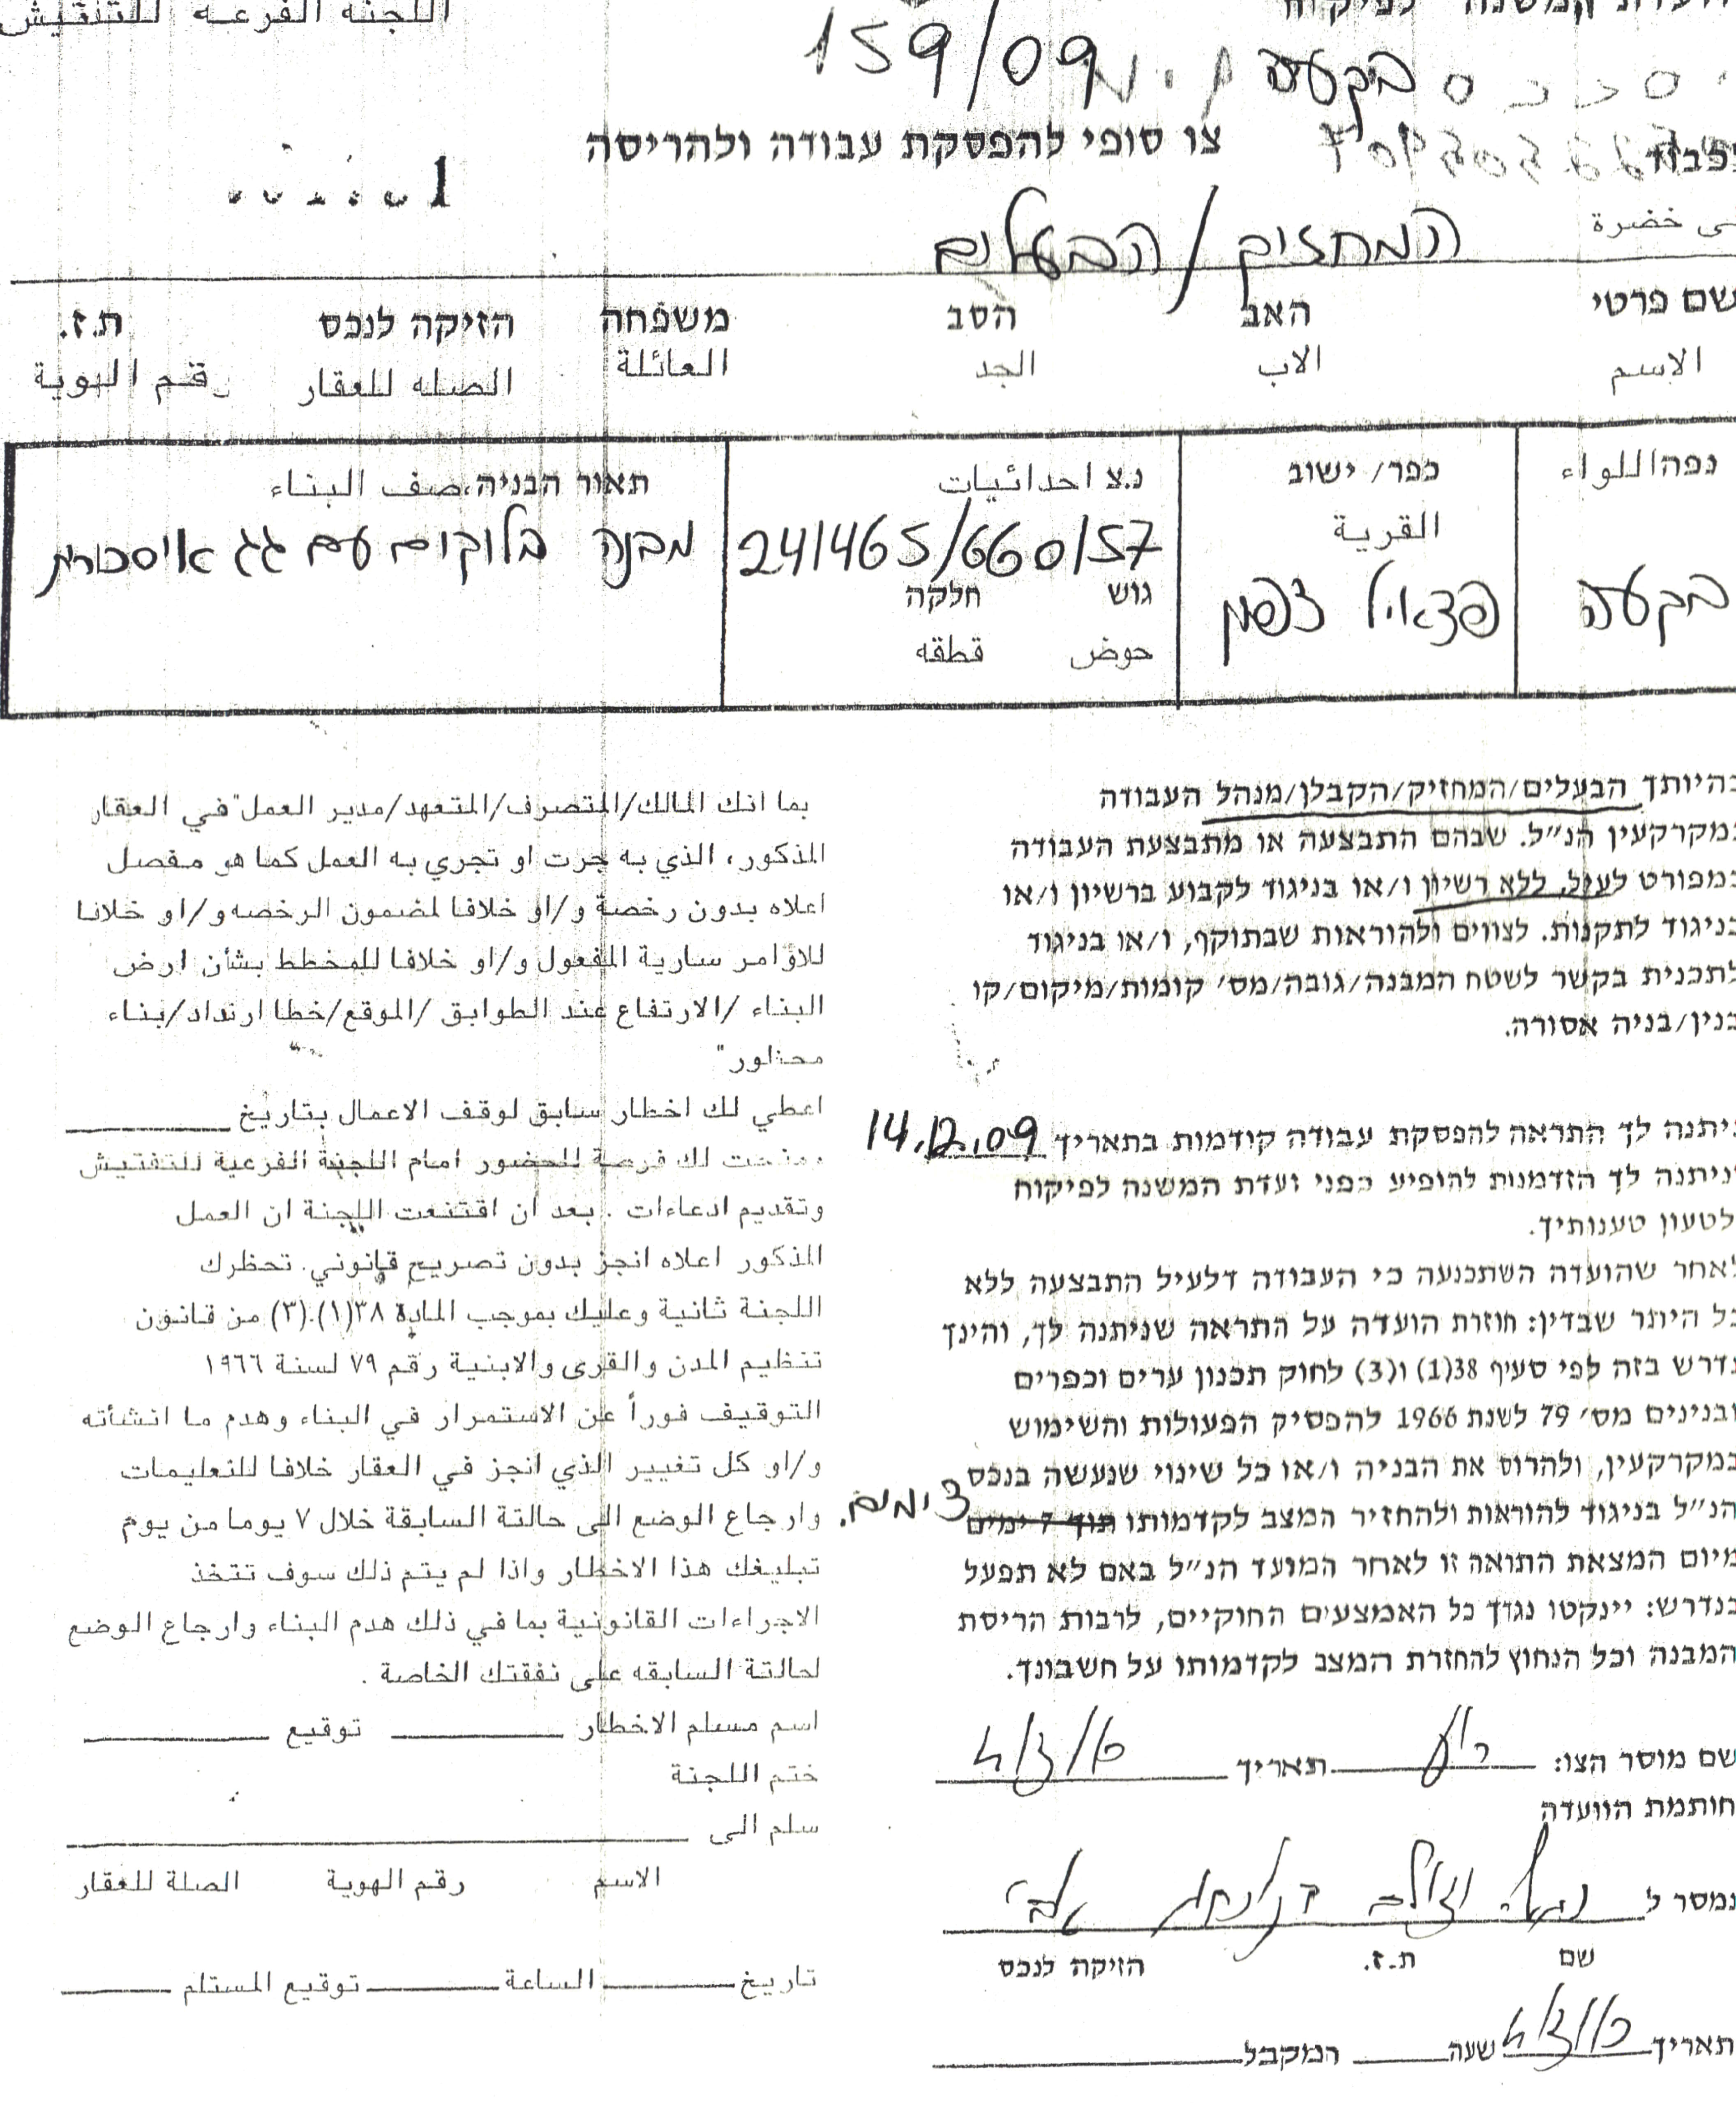 اللجنة الفرعية للتفتيش
ועדת המשנה לפיקוח
159/09 בקעה
צו סופי להפסקת עבודה ולהריסה
לכבוד
خضرة
המחזיק / הבעלים
שם פרטי האב הסב משפחה הזיקה לנכס ת.ז.
الاسم الاب الجد العائلة الصله للعقار رقم الهوية
נפה اللواء כפר/ ישוב נ.צ احداثيات תאור הבניה، صف البناء
القرية
בקעה פצאיל צפון 241465/660157 מבנה בלוקים עם גג איסכורית
גוש חלקה
حوض قطقه
בהיותך הבעלים/המחזיק/הקבלן/מנהל העבודה
במקרקעין הנ״ל. שבהם התבצעה או מתבצעת העבודה
כמפורט לעיל, ללא רשיון ו/או בניגוד לקבוע ברשיון ו/או
בניגוד לתקנות. לצווים ולהוראות שבתוקף, ו/או בניגוד
לתכנית בקשר לשטח המבנה/גובה/מס׳ קומות/מיקום/קו
בנין/בניה אסורה.
ניתנה לך התראה להפסקת עבודה קודמות בתאריך 14.12.09
וניתנה לך הזדמנות להופיע בפני ועדת המשנה לפיקוח
לטעון טענותיך.
לאחר שהועדה השתכנעה כי העבודה דלעיל התבצעה ללא
כל היתר שבדין: חוזרת הועדה על התראה שניתנה לך, והינך
נדרש בזה לפי סעיף 38(1) ו(3) לחוק תכנון ערים וכפרים
ובנינים מס׳ 79 לשנת 1966 להפסיק הפעולות והשימוש
במקרקעין, ולהרוס את הבניה ו/או כל שינוי שנעשה בנכס
הנ״ל בניגוד להוראות ולהחזיר המצב לקדמותו תוך 7 ימים 3 ימים.
מיום המצאת התואה זו לאחר המועד הנ״ל באם לא תפעל
כנדרש: יינקטו נגדך כל האמצעים החוקיים, לרבות הריסת
המבנה וכל הנחוץ להחזרת המצב לקדמותו על חשבונך.
שם מוסר הצו: תאריך 4/3/10
חותמת הוועדה
נמסר ל
שם ת.ז. הזיקה לנכס
תאריך 4/3/10 שעה המקבל
بما انك المالك/المتصرف/المتعهد/مدير العمل في العقار
المذكور، الذي به جرت او تجري به العمل كما هو مفصل
اعلاه بدون رخصة و/او خلافا لمضمون الرخصه و/او خلافا
للاوامر سارية المفعول و/او خلافا للمخطط بشأن ارض
البناء /الارتفاع عند الطوابق /الموقع/خطا ارتداد/بناء
محذور"
اعطي لك اخطار سابق لوقف الاعمال بتاريخ
ومنحت لك فرصة للحضور امام اللجنة الفرعية للتفتيش
وتقديم ادعاءات . بعد ان اقتنعت اللجنة ان العمل
المذكور اعلاه انجز بدون تصريح قانوني. تحظرك
اللجنة ثانية وعليك بموجب المادة ٣٨(١).(٣) من قانون
تنظيم المدن والقرى والابنية رقم ٧٩ لسنة ١٩٦٦
التوقيف فوراً عن الاستمرار في البناء وهدم ما انشأته
و/او كل تغيير الذي انجز في العقار خلافا للتعليمات
وارجاع الوضع الى حالتة السابقة خلال ٧ يوما من يوم
تبليغك هذا الاخطار واذا لم يتم ذلك سوف تتخذ
الاجراءات القانونية بما في ذلك هدم البناء وارجاع الوضع
لحالتة السابقه على نفقتك الخاصة .
اسم مسلم الاخطار توقيع
ختم اللجنة
سلم الى
الاسم رقم الهوية الصلة للعقار
تاريخ الساعة توقيع المستلم